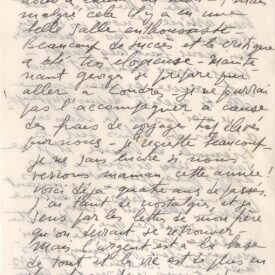 malgré cela il y a eu une
belle salle enthousiaste
Beaucoup de succès et la critique
a été très élogieuse - Mainte
nant georges se prépare pour
aller à Londres, je ne pourrai
pas l'accompagner à cause
des frais de voyage trop élevés
pour nous - je regrette beaucoup -
je ne sais encore si nous
verrons maman cette année !
voici déjà quatre ans de passés.
j'ai tant de nostalgie, et je
sens par les lettres de mon père
qu'on devrait se retrouver.
Mais l'argent est à la base
de tout et la vie est de plus en